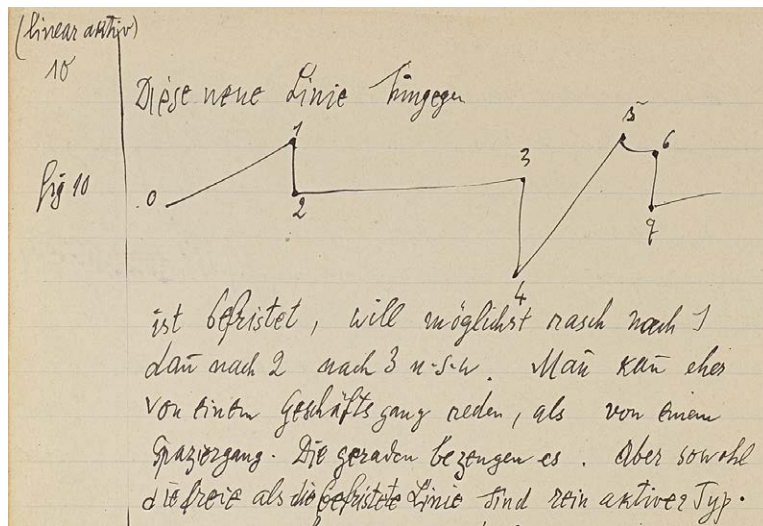 (linear aktiv)
10
Diese neue Linie hingegen
fig 10
0
1
2
3
4
5
6
7
ist befristet, will möglichst rasch nach 1
dañ nach 2 nach 3 u-s-w. Mañ kañ eher
von einem Geschäftsgang reden, als von einem
Spaziergang. Die geraden bezeugen es. Aber sowohl
die freie als die befristete Linie sind rein aktiver Typ.